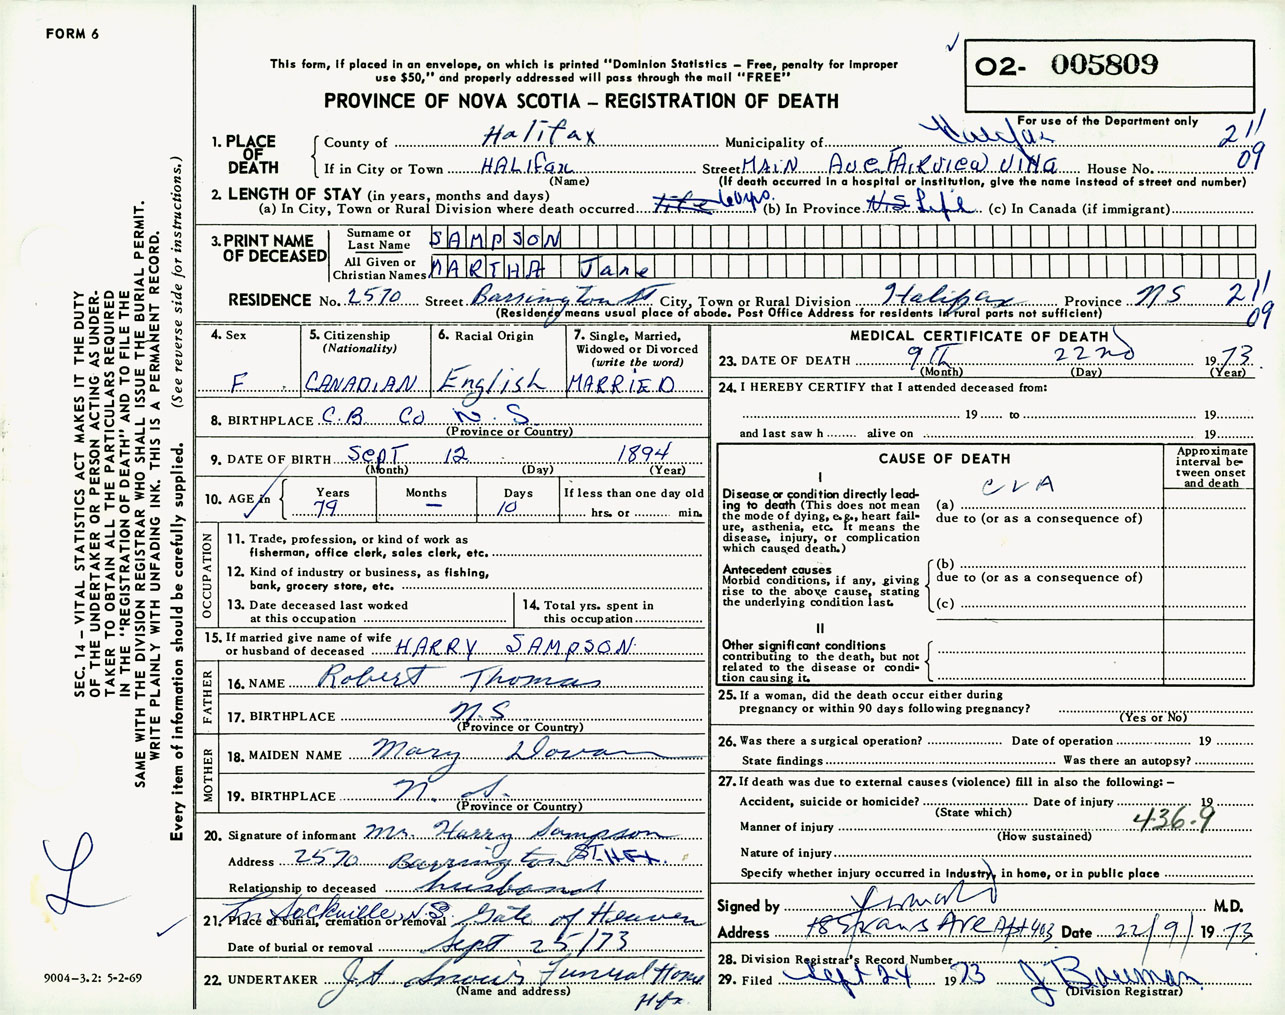 FORM 6
SEC. 14 – VITAL STATISTICS ACT MAKES IT THE DUTY
OF THE UNDERTAKER OR PERSON ACTING AS UNDER-
TAKER TO OBTAIN ALL THE PARTICULARS REQUIRED
IN THE "REGISTRATION OF DEATH" AND TO FILE THE
SAME WITH THE DIVISION REGISTRAR WHO SHALL ISSUE THE BURIAL PERMIT.
WRITE PLAINLY WITH UNFADING INK. THIS IS A PERMANENT RECORD.
Every item of information should be carefully supplied. (See reverse side for instructions.)
L
9004–3.2: 5-2-69
This form, if placed in an envelope, on which is printed "Dominion Statistics – Free, penalty for improper
use $50," and properly addressed will pass through the mail "FREE"
PROVINCE OF NOVA SCOTIA – REGISTRATION OF DEATH
02- 005809
For use of the Department only
1. PLACE OF DEATH
County of Halifax Municipality of Halifax 211
If in City or Town HALIFax Street MAIN Ave FAIRview House No. 09
(Name) (If death occurred in a hospital or institution, give the name instead of street and number)
2. LENGTH OF STAY (in years, months and days)
(a) In City, Town or Rural Division where death occurred (b) In Province N.S Life (c) In Canada (if immigrant)
3. PRINT NAME OF DECEASED
Surname or Last Name SAMPSON
All Given or Christian Names MARTHA Jane
RESIDENCE No. 2570 Street Barrington St City, Town or Rural Division Halifax Province NS 211
(Residence means usual place of abode. Post Office Address for residents in rural parts not sufficient) 09
4. Sex F
5. Citizenship (Nationality) CANADIAN
6. Racial Origin English
7. Single, Married, Widowed or Divorced (write the word) MARRIED
8. BIRTHPLACE C.B. Co N.S.
(Province or Country)
9. DATE OF BIRTH Sept 12 1894
(Month) (Day) (Year)
10. AGE in Years 79 Months – Days 10 If less than one day old hrs. or min.
OCCUPATION
11. Trade, profession, or kind of work as
fisherman, office clerk, sales clerk, etc.
12. Kind of industry or business, as fishing,
bank, grocery store, etc.
13. Date deceased last worked
at this occupation
14. Total yrs. spent in
this occupation
15. If married give name of wife
or husband of deceased HARRY SAMPSON
FATHER
16. NAME Robert Thomas
17. BIRTHPLACE N.S
(Province or Country)
MOTHER
18. MAIDEN NAME Mary
19. BIRTHPLACE N. S.
(Province or Country)
20. Signature of informant Mr. Harry Sampson
Address 2570 Barrington ST. HFX.
Relationship to deceased husband
21. Place of burial, cremation or removal Lr Sackville, N.S Gate of Heaven
Date of burial or removal Sept 25/73
22. UNDERTAKER J.A Snow's Funeral Home
(Name and address) Hfx
MEDICAL CERTIFICATE OF DEATH
23. DATE OF DEATH 9TH 22nd 1973
(Month) (Day) (Year)
24. I HEREBY CERTIFY that I attended deceased from:
19 to 19
and last saw h alive on 19
CAUSE OF DEATH
Approximate interval between onset and death
I
Disease or condition directly lead-
ing to death (This does not mean
the mode of dying, e.g., heart fail-
ure, asthenia, etc. It means the
disease, injury, or complication
which caused death.)
(a) CVA
due to (or as a consequence of)
Antecedent causes
Morbid conditions, if any, giving
rise to the above cause, stating
the underlying condition last.
(b)
due to (or as a consequence of)
(c)
II
Other significant conditions
contributing to the death, but not
related to the disease or condi-
tion causing it.
25. If a woman, did the death occur either during
pregnancy or within 90 days following pregnancy?
(Yes or No)
26. Was there a surgical operation? Date of operation 19
State findings Was there an autopsy?
27. If death was due to external causes (violence) fill in also the following: –
Accident, suicide or homicide? Date of injury 19
(State which)
Manner of injury 436.9
(How sustained)
Nature of injury
Specify whether injury occurred in industry, in home, or in public place
Signed by M.D.
Address Ave Apt 403 Date 22/9/1973
28. Division Registrar's Record Number
29. Filed Sept 24 1973 J Bauman
(Division Registrar)